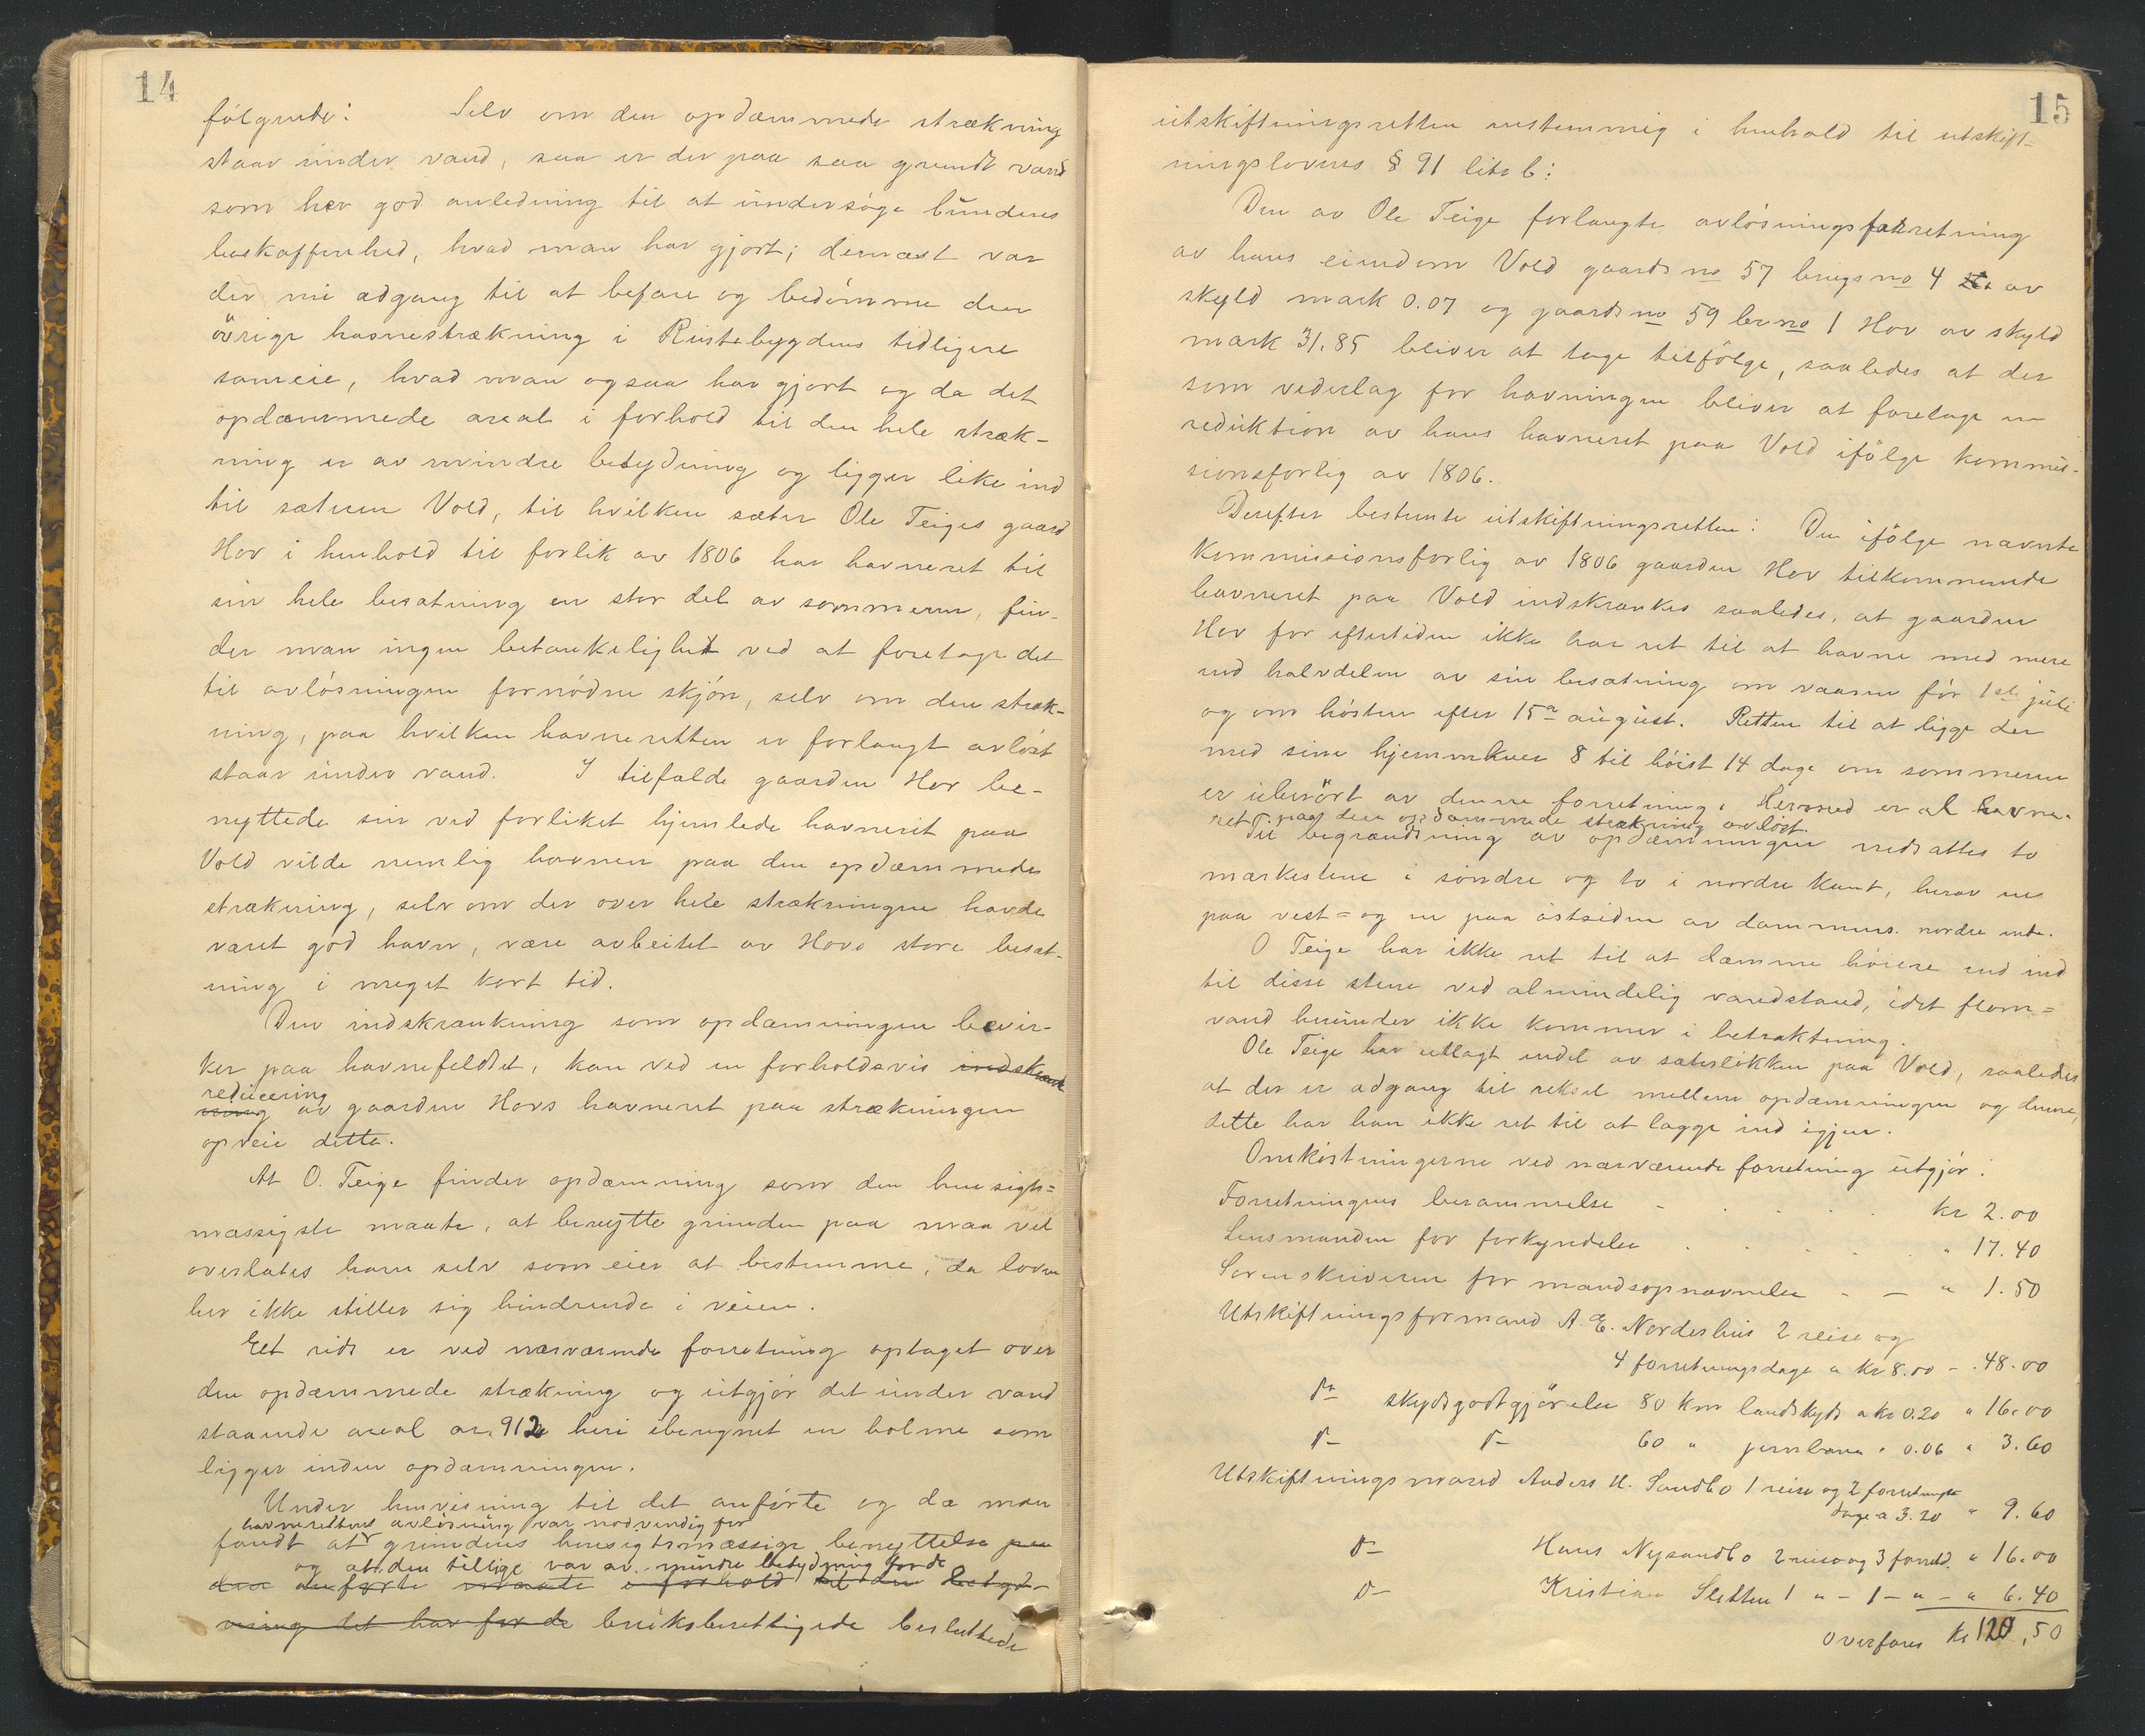 14
følgende: Selv om den opdæmmede strækning
staar under vand, saa er der paa saa grundt vand
som her god anledning til at undersøge bundens
beskaffenhed, hvad man har gjort; dernæst var
der nu adgang til at befare og bedømme den
övrige havnestrækning i Rustebygdens tidligere
sameie, hvad man ogsaa har gjort og da det
opdæmmede areal i forhold til den hele stræk-
ning er av mindre betydning og ligger like ind
til sætren Vold, til hvilken sæter Ole Teiges gaard
Hov i henhold til forlik av 1806 har havneret til
sin hele besætning en stor del av sommeren, fin-
der man ingen betænkelighet ved at foretage det
til avløsningen fornødne skjøn, selv om den stræk-
ning, paa hvilken havneretten er forlangt avløst
staar under vand. I tilfælde gaarden Hov be-
nyttede sin ved forliket hjemlede havneret paa
Vold vilde nemlig havnen paa den opdæmmede
strækning, selv om der over hele strækningen havde
været god havn, være avbeitet av Hovs store besæt-
ning i meget kort tid.
Den indskrænkning som opdæmningen bevir-
ker paa havnefeldtet, kan ved en forholdsvis indskrænk
reducering
ning av gaarden Hovs havneret paa strækningen
opveie dette.
At O. Teige finder opdæmning som den hensigts=
mæssigste maate, at benytte grunden paa maa vel
overlates ham selv som eier at bestemme, da loven
her ikke stiller sig hindrende i veien.
Et rids er ved nærværende forretning optaget over
den opdæmmede strækning og utgjør det under vand
staaende areal ar. 912 heri iberegnet en holme som
ligger inden opdæmningen.
Under henvisning til det anførte og da man
havnerettens avløsning var nødvendig for
fandt at grundens hensigtsmæssige benyttelse paa
og at den tillige var av mindre betydning for de
den anførte maate i forhold til den betyd-
ning det har for de bruksberettigede besluttede
15
utskiftningsretten enstemmig i henhold til utskift=
ningslovens § 91 litr b:
Den av Ole Teige forlangte avløsningsforretning
av hans eiendom Vold gaards no 57 brugs no 4 av
skyld mark 0.07 og gaards no 59 br no 1 Hov av skyld
mark 31.85 bliver at tage tilfölge, saaledes at der
som vederlag for havningen bliver at foretage en
reduktion av hans havneret paa Vold ifölge kommis-
sionsforlig av 1806.
Derefter bestemte utskiftningsretten: Den ifölge nævnte
Kommissionsforlig av 1806 gaarden Hov tilkommende
havneret paa Vold indskrænkes saaledes, at gaarden
Hov for eftertiden ikke har ret til at havne med mere
end halvdelen av sin besætning om vaaren før 1ste juli
og om høsten efter 15de august. Retten til at ligge der
med sine hjemmekuer 8 til høist 14 dage om sommeren
er uberört av denne forretning. Hermed er al havne-
ret paa den opdæmmede strækning avløst.
Til begrændsning av opdæmningen nedsattes to
merkestene i søndre og to i nordre kant, herav en
paa vest= og en paa østsiden av dammens nordre ende.
O Teige har ikke ret til at dæmme høiere end ind
til disse stene ved almindelig vandstand, idet flom=
vand herunder ikke kommer i betraktning.
Ole Teige har utlagt endel av sæterlikken paa Vold, saaledes
at der er adgang til rekset mellem opdæmningen og denne,
dette har han ikke ret til at lægge ind igjen.
Omkostningerne ved nærværende forretning utgjør:
Forretningens berammelse - . . . . kr 2.00
Lensmanden for forkyndelse . . . . . " 17.40
Sorenskriveren for mandsopnævnelse - — " 1.50
Utskiftningsformand A. E. Nordeshus 2 reise og
4 forretningsdage a kr 8.00 - . 48.00
Do skydsgodtgjörelse 80 km landskyds a kr 0.20 " 16.00
D— D— 60 " jernbane " 0.06 " 3.60
Utskiftningsmand Anders H. Sandbo 1 reise og 2 forretnings
dage a 3.20 " 9.60
D— Hans Nysandbo 2 reise og 3 forretd. " 16.00
D— Kristian Sletten 1 " — 1 — " — " 6.40
Overføres kr 120,50